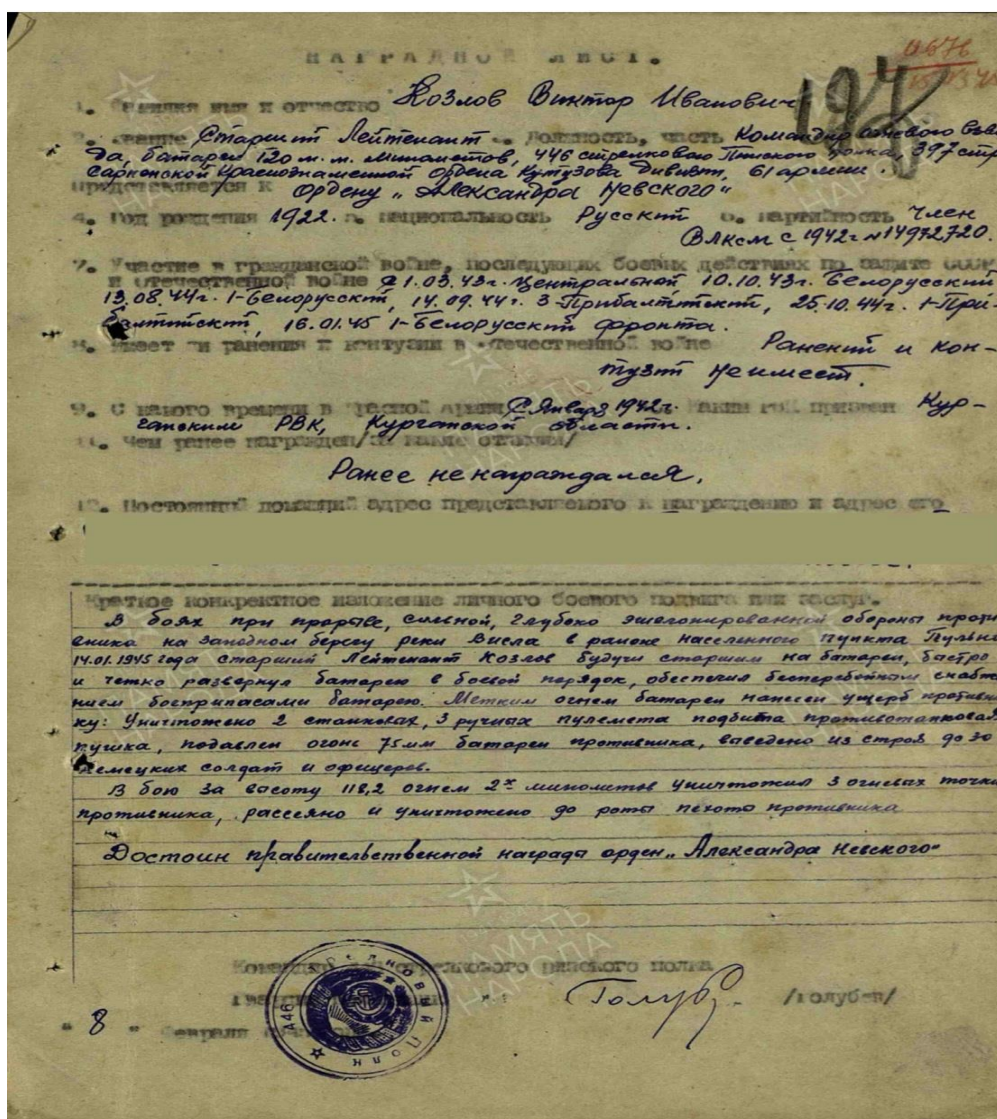 НАГРАДНОЙ ЛИСТ.
1. Фамилия имя и отчество Козлов Виктор Иванович
2. Звание Старший Лейтенант Должность, часть Командир огневого взво-
да, батареи 120 м.м. минометов, 446 стрелкового Пинского полка, 397 стр.
Сарненской Краснознаменной ордена Кутузова Дивизии, 61 армии.
Представляется к ордену „Александра Невского"
4. Год рождения 1922 г. национальность Русский 6. партийность Член
ВЛКСМ с 1942г. №14972720.
7. Участие в гражданской войне, последующих боевых действиях по защите СССР
и отечественной войне С 1.03.43г. Центральной 10.10.43г. Белорусский
13.08.44г. 1-Белорусский, 14.09.44г. 3-Прибалтийский, 25.10.44г. 1-При-
балтийский, 16.01.45 1-Белорусский фронта.
8. Имеет ли ранения и контузии в отечественной войне Ранений и кон-
тузий не имеет.
9. С какого времени в Красной Армии С Января 1942г. Каким РВК призван Кур-
ганским РВК, Курганской области.
11. Чем ранее награжден/за какие отличия/
Ранее не награждался.
12. Постоянный домашний адрес представляемого к награждению и адрес его
Краткое конкретное изложение личного боевого подвига или заслуг.
В боях при прорыве, сильной, глубоко эшелонированной обороны проти-
вника на западном берегу реки Висла в районе населенного пункта
14.01.1945 года старший Лейтенант Козлов будучи старшим на батареи, быстро
и четко развернул батарею в боевой порядок, обеспечил бесперебойным снабже-
нием боеприпасами батарею. Метким огнем батареи нанесен ущерб противни-
ку: Уничтожено 2 станковых, 3 ручных пулемета подбита противотанковая
пушка, подавлен огонь 75мм батареи противника, выведено из строя до 30
немецких солдат и офицеров.
В бою за высоту 118,2 огнем 2х минометов уничтожил 3 огневых точки
противника, рассеяно и уничтожено до роты пехоты противника
Достоин правительственной награды орден „Александра Невского"
Командир стрелкового Пинского полка
Голуб /Голубев/
"8" Февраля